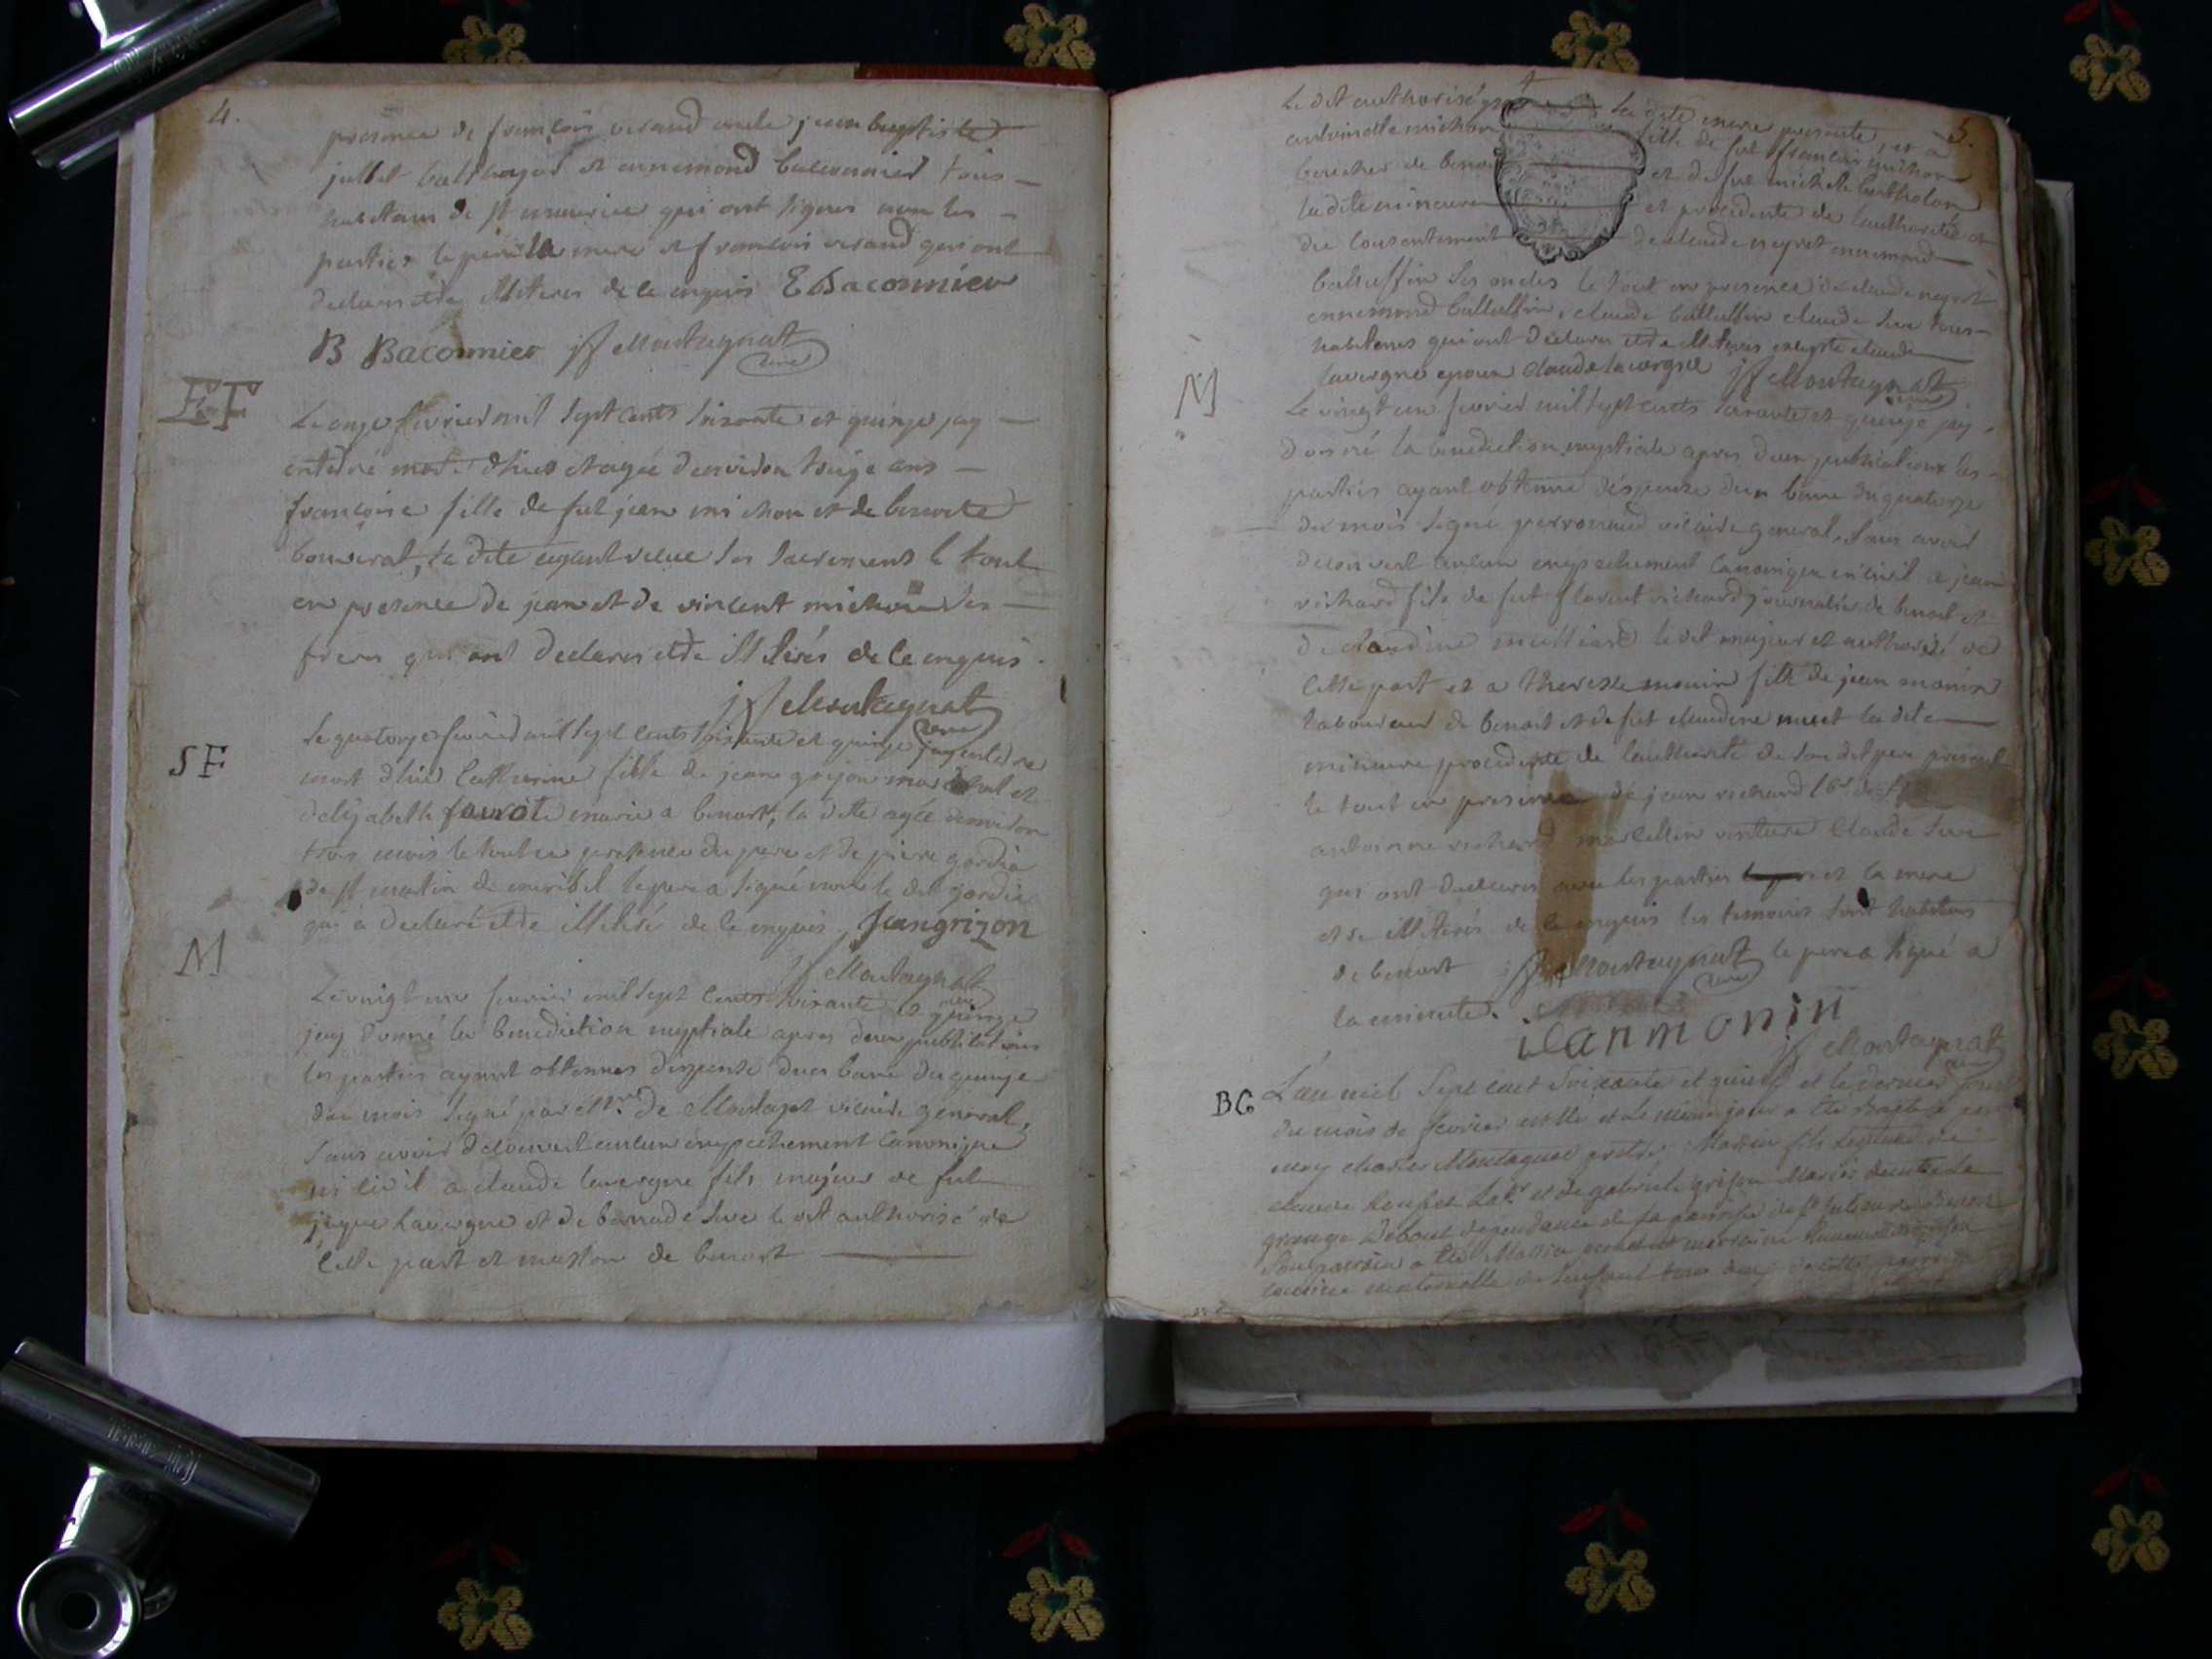 4.
presence de françois verand oncle jean baptiste
jullet balthazard et ennemond baconnier tous
habitans de st maurice qui ont signés non les
parties le père la mere et françois verand qui ont
declarés etre illiteres de ce enquis E Baconnier
B Baconnier jf Montagnat
curé
EF
Le onze fevrier mil sept cents soixante et quinze jay
enterré morte d'hier et agée d'environ treize ans
françoise fille de fut jean michon et de benoite
bouverat, la dite ayant recue les sacremens le tout
en presence de jean et de vincent michon ses
freres qui ont declarés etre illiterés de ce enquis.
jf Montagnat
curé
SF
Le quatorze fevrier mil sept cents soixante et quinze jay enterré
mort d'hier Catherine fille de jean grizon marechal et
delizabeth favrot mariés a benost, la dite agée denviron
trois mois le tout en presence du pere et de piere gordia
de st martin de miribel le pere a signé non le dit gordia
qui a declaré etre illitéré de ce enquis. Jean grizon
jf Montagnat
curé
M
Le vingt un fevrier mil sept cents soixante et quinze
jay donné la benediction nuptiale apres deux publications
les parties ayant obtennes dispense d'un banc du quinze
du mois signé par Mr. de Montazet vicaire general,
sans avoir decouvert aucun empechement canonique
ni civil a claude lavergne fils majeur de fut
jaque Lavergne et de bernade Sve le dit authorisé de
cette part et masson de benost
5.
Le dit authorisé par la dite mere presente, et a
antoinette michon fille de fut françois michon
boucher de benost et de fut michele bertholon
la dite mineure et procedente de lauthorité et
du consentement de claude neyret ennemond
balluffin ses oncles le tout en presence de claude neyret
ennemond balluffin, claude balluffin claude Sve tous
habitans qui ont declarés etre illiterés excepté claude
lavergne epoux claude lavergne jf Montagnat
curé
M
Le vingt un fevrier mil sept cents soixante et quinze jay
donné la benediction nuptiale apres deux publications les
parties ayant obtenue dispense d'un banc du quatorze
du mois signé perronneud vicaire general, sans avoir
decouvert aucun empechement canonique ni civil a jean
richard fils de fut florent richard journalier de benost et
de claudine mulliard le dit majeur et authorisé de
cette part et a therese monin fille de jean monin
laboureur de benost et de fut claudine muret la dite
mineure procedente de lauthorité de son dit pere present
le tout en presence de jean richard
antoinne richard marcellin venture claude Sve
qui ont declarés avec les parties et la mere
etre illiterés de ce enquis les temoins sont habitans
de benost jf Montagnat le pere a signé a
curé
la minute.
iean monin
jf Montagnat
curé
BG
L'an mil sept cent soixante et quinze et le dernier jour
du mois de fevrier est né et le même jour a été baptisé par
moy charles Montagnat prêtre Mathieu fils legitime de
claude et de gabriele grison Mariés
grange dependance de la paroisse de st
Son parrein a été Mathieu et merraine
cousine maternelle de l'enfant tous deux de cette paroisse